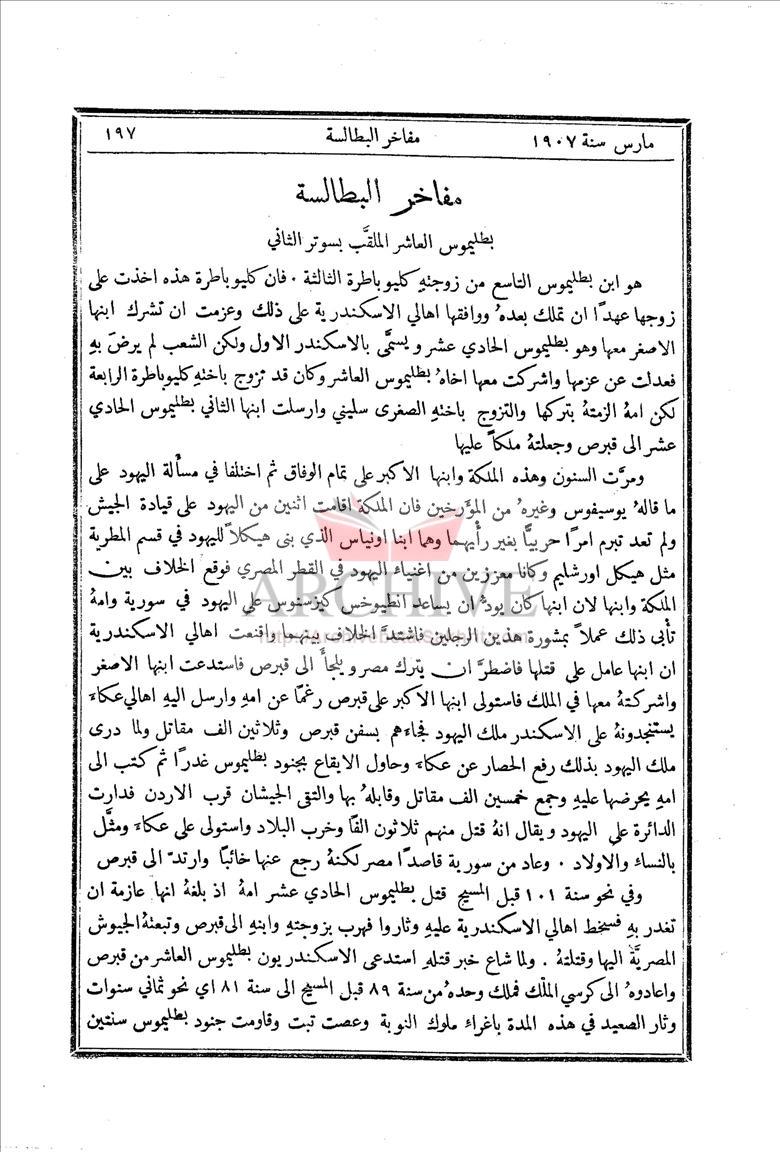 مارس سنة ١٩٠٧ مفاخر البطالسة ١٩٧
مفاخر البطالسة
بطليموس العاشر الملقَّب بسوتر الثاني
هو ابن بطليموس التاسع من زوجتهِ كليوباطرة الثالثة ٠ فان كليوباطرة هذه اخذت على
زوجها عهدًا ان تملك بعدهُ ووافقها اهالي الاسكندرية على ذلك وعزمت ان تشرك ابنها
الاصغر معها وهو بطليموس الحادي عشر ويسمَّى بالاسكندر الاول ولكن الشعب لم يرضَ بهِ
فعدلت عن عزمها واشركت معها اخاهُ بطليموس العاشر وكان قد تزوج باختهِ كليوباطرة الرابعة
لكن امهُ الزمتهُ بتركها والتزوج باختهِ الصغرى سليني وارسلت ابنها الثاني بطليموس الحادي
عشر الى قبرص وجعلتهُ ملكاً عليها
ومرَّت السنون وهذه الملكة وابنها الاكبر على تمام الوفاق ثم اختلفا في مسأَلة اليهود على
ما قالهُ يوسيفوس وغيرهُ من المؤَرخين فان الملكة اقامت اثنين من اليهود على قيادة الجيش
ولم تعد تبرم امرًا حربيًّا بغير رأْيهما وهما ابنا اونياس الذي بنى هيكلاً لليهود في قسم المطرية
مثل هيكل اورشليم وكانا معززين من اغنياء اليهود في القطر المصري فوقع الخلاف بين
الملكة وابنها لان ابنها كان يودُّ ان يساعد انطيوخس كيزسنوس على اليهود في سورية وامهُ
تأْبى ذلك عملاً بمشورة هذين الرجلين فاشتدَّ الخلاف بينهما واقنعت اهالي الاسكندرية
ان ابنها عامل على قتلها فاضطرَّ ان يترك مصر ويلجأَ الى قبرص فاستدعت ابنها الاصغر
واشركتهُ معها في الملك فاستولى ابنها الاكبر على قبرص رغمًا عن امهِ وارسل اليهِ اهالي عكاءَ
يستنجدونهُ على الاسكندر ملك اليهود فجاءَهم بسفن قبرص وثلاثين الف مقاتل ولما درى
ملك اليهود بذلك رفع الحصار عن عكاءَ وحاول الايقاع بجنود بطليموس غدرًا ثم كتب الى
امهِ يحرضها عليهِ وجمع خمسين الف مقاتل وقابلهُ بها والتقى الجيشان قرب الاردن فدارت
الدائرة على اليهود ويقال انهُ قتل منهم ثلاثون الفًا وخرب البلاد واستولى على عكاءَ ومثَّل
بالنساء والاولاد ٠ وعاد من سورية قاصدًا مصر لكنهُ رجع عنها خائبًا وارتدَّ الى قبرص
وفي نحو سنة ١٠١ قبل المسيح قتل بطليموس الحادي عشر امهُ اذ بلغهُ انها عازمة ان
تغدر بهِ فسخط اهالي الاسكندرية عليهِ وثاروا فهرب بزوجتهِ وابنهِ الى قبرص وتبعتهُ الجيوش
المصريَّة اليها وقتلتهُ ٠ ولما شاع خبر قتلهِ استدعى الاسكندريون بطليموس العاشر من قبرص
واعادوهُ الى كرسي الملك فملك وحدهُ من سنة ٨٩ قبل المسيح الى سنة ٨١ اي نحو ثماني سنوات
وثار الصعيد في هذه المدة باغراء ملوك النوبة وعصت تبت وقاومت جنود بطليموس سنتين
ARCHIVE